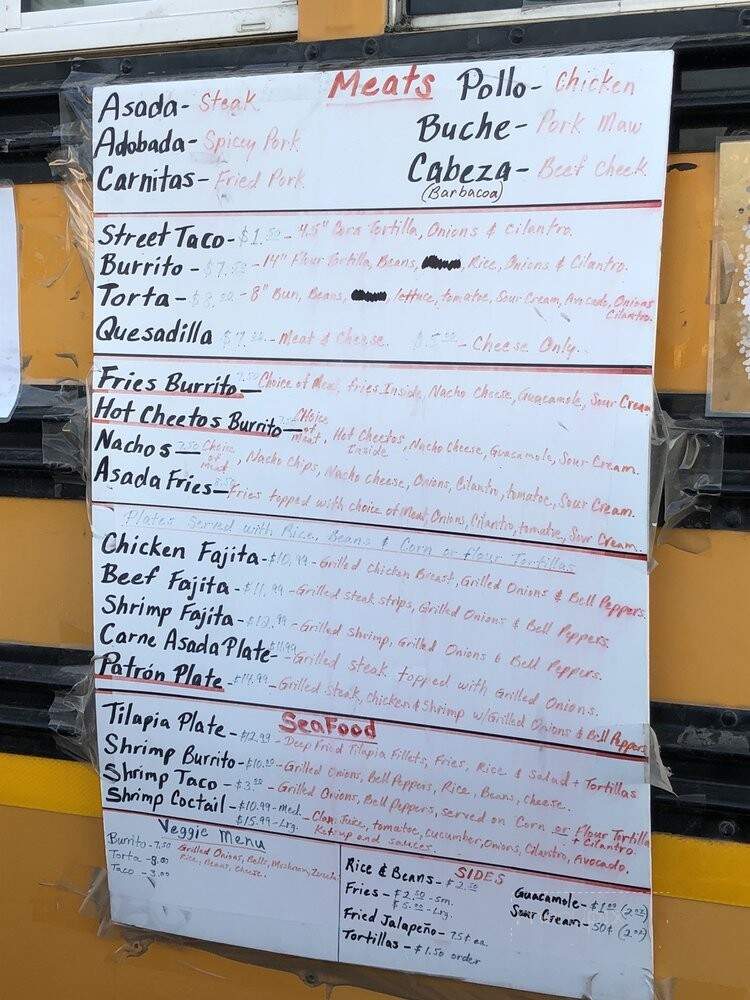 Meats
Asada- Steak
Adobada- Spicey Pork
Carnitas- Fried Pork
Pollo- Chicken
Buche- Pork Maw
Cabeza- Beef Cheek
(Barbacoa)
Street Taco- $1.50 - 4.5" Corn Tortilla, Onions & Cilantro.
Burrito - $7.50 - 14" Flour Tortilla, Beans, Rice, Onions & Cilantro.
Torta - 8" Bun, Beans, lettuce, tomatoe, Sour Cream, Avocado, Onions
Cilantro.
Quesadilla - Meat & Cheese. $5.00 - Cheese Only.
Fries Burrito - 7.50 Choice of Meat, Fries Inside, Nacho Cheese, Guacamole, Sour Cream
Hot Cheetos Burrito - Choice of meat, Hot Cheetos Inside, Nacho Cheese, Guacamole, Sour Cream.
Nachos - 7.50 Choice of meat, Nacho Chips, Nacho Cheese, Onions, Cilantro, tomatoe, Sour Cream.
Asada Fries - Fries topped with choice of Meat, Onions, Cilantro, tomatoe, Sour Cream.
Plates Served with Rice, Beans & Corn or flour Tortillas
Chicken Fajita - $10.99 - Grilled Chicken Breast, Grilled Onions & Bell Peppers.
Beef Fajita - $11.99 - Grilled Steak strips, Grilled Onions & Bell Peppers.
Shrimp Fajita - $12.99 - Grilled Shrimp, Grilled Onions & Bell Peppers.
Carne Asada Plate - $11.99 - Grilled steak topped with Grilled Onions.
Patrón Plate - $14.99 - Grilled Steak, Chicken & Shrimp w/Grilled Onions & Bell Peppers
SeaFood
Tilapia Plate - $12.99 - Deep Fried Tilapia Fillets, Fries, Rice & Salad + Tortillas
Shrimp Burrito - $10.00 - Grilled Onions, Bell Peppers, Rice, Beans, Cheese.
Shrimp Taco - $3.00 - Grilled Onions, Bell Peppers, served on Corn or Flour Tortilla
+ Cilantro.
Shrimp Coctail - $10.99 - Med. - Clam Juice, tomatoe, cucumber, Onions, Cilantro, Avocado.
$15.99 - Lrg. Ketsup and sauces.
Veggie Menu
Burrito - 7.50 Grilled Onions, Bells, Mushroom, Zucchini
Torta - 8.00 Rice, Beans, Cheese.
Taco - 3.00
SIDES
Rice & Beans - $2.50
Fries - $2.50 - Sm.
$5.00 - Lrg.
Fried Jalapeño - 75¢ ea.
Tortillas - $1.50 order
Guacamole - $1.00 (2oz)
Sour Cream - 50¢ (2oz)